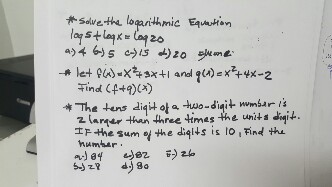 * Solve the logarithmic Equation
log 5 + log x = log 20
a) 4 b) 5 c) 15 d) 20
* let f(x) = x² + 3x + 1 and g(x) = x² + 4x - 2
Find (f+g)(x)
* The tens digit of a two-digit number is
2 larger than three times the units digit.
IF the sum of the digits is 10, Find the
number.
a-) 84 c-) 82 E-) 26
b-) 28 d-) 80